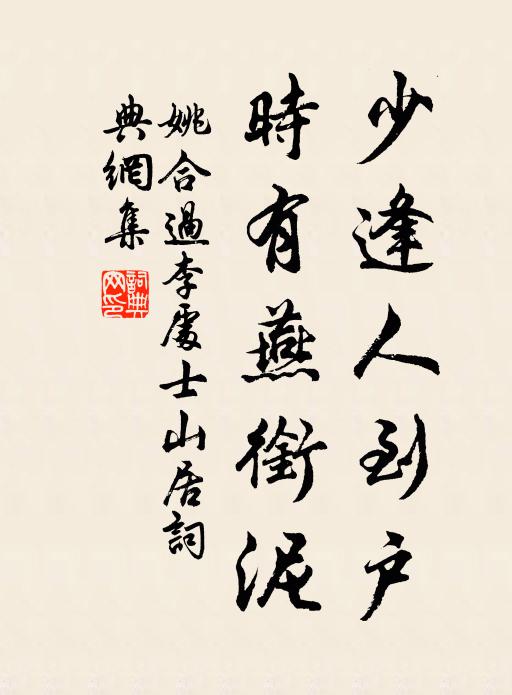 少逢人到户
時有燕銜泥
姚合過李處士山居詞
典網集
詞典網印